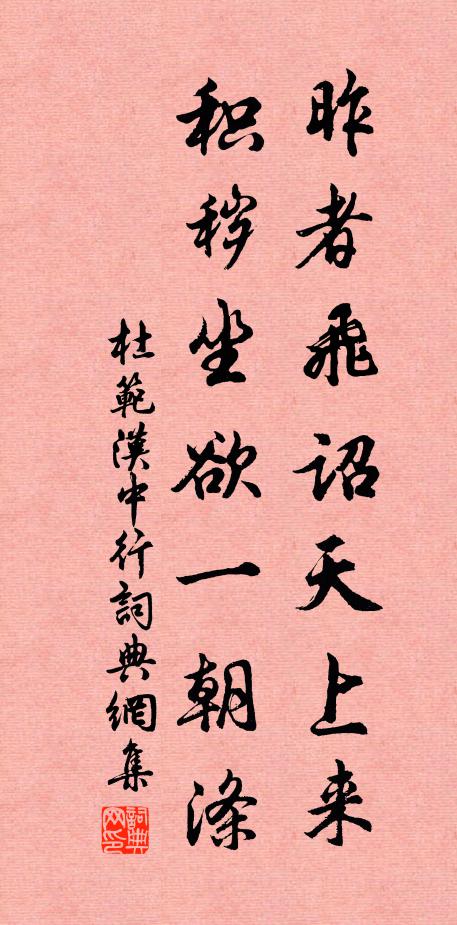 昨者飛诏天上来
积秽坐欲一朝涤
杜範漢中行詞典網集
詞典网印